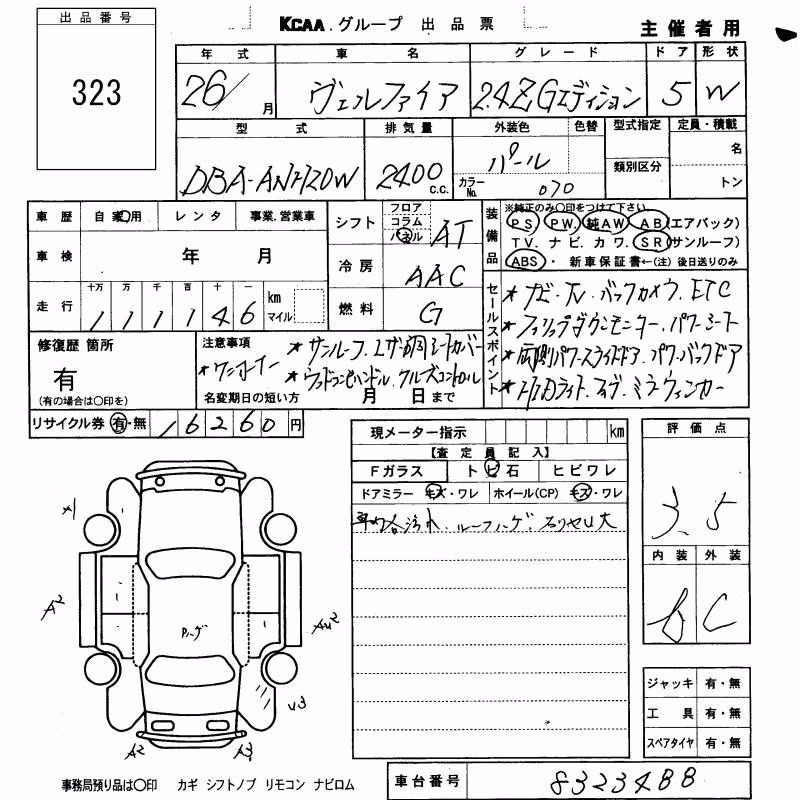 出品番号
323
KCAA.グループ 出品票
主催者用
年式 車名 グレード ドア 形状
26/ 月 ヴェルファイア 2.4Z,Gエディション 5 W
型式 排気量 外装色 色替 型式指定 定員・積載
DBA-ANH20W 2400 c.c. パール 名
類別区分
カラーNo. 070 トン
車歴 自家用 レンタ 事業.営業車
シフト フロア コラム パネル AT
車検 年 月
冷房 AAC
走行 十万 万 千 百 十 一
1 1 1 1 4 6 km マイル
燃料 G
装備品 ※純正のみ○印をつけて下さい
PS PW. 純AW AB (エアバック)
TV. ナビ. カワ. SR (サンルーフ)
ABS・ 新車保証書←(注) 後日送りのみ
セールスポイント
★ナビ・TV・バックカメラ.ETC
★フリップダウンモニター・パワーシート
★両側パワースライドドア.パワーバックドア
★HIDライト.
ミラーウィンカー
修復歴 箇所
有
(有の場合は○印を)
注意事項
★ワンオーナー
★サンルーフ.
シートカバー
★ウッドコンビハンドル.クルーズコントロール
名変期日の短い方 月 日まで
リサイクル券 有・無 16260円
現メーター指示 km
【査定員記入】
Fガラス トビ石 ヒビワレ
ドアミラー キズ・ワレ ホイール(CP) キズ・ワレ
ルーフハゲ.
評価点
3.5
内装 外装
B C
A1
A2
Pハゲ
AU2
U3
A2
A3
ジャッキ 有・無
工具 有・無
スペアタイヤ 有・無
事務局預り品は○印 カギ シフトノブ リモコン ナビロム
車台番号 8323488